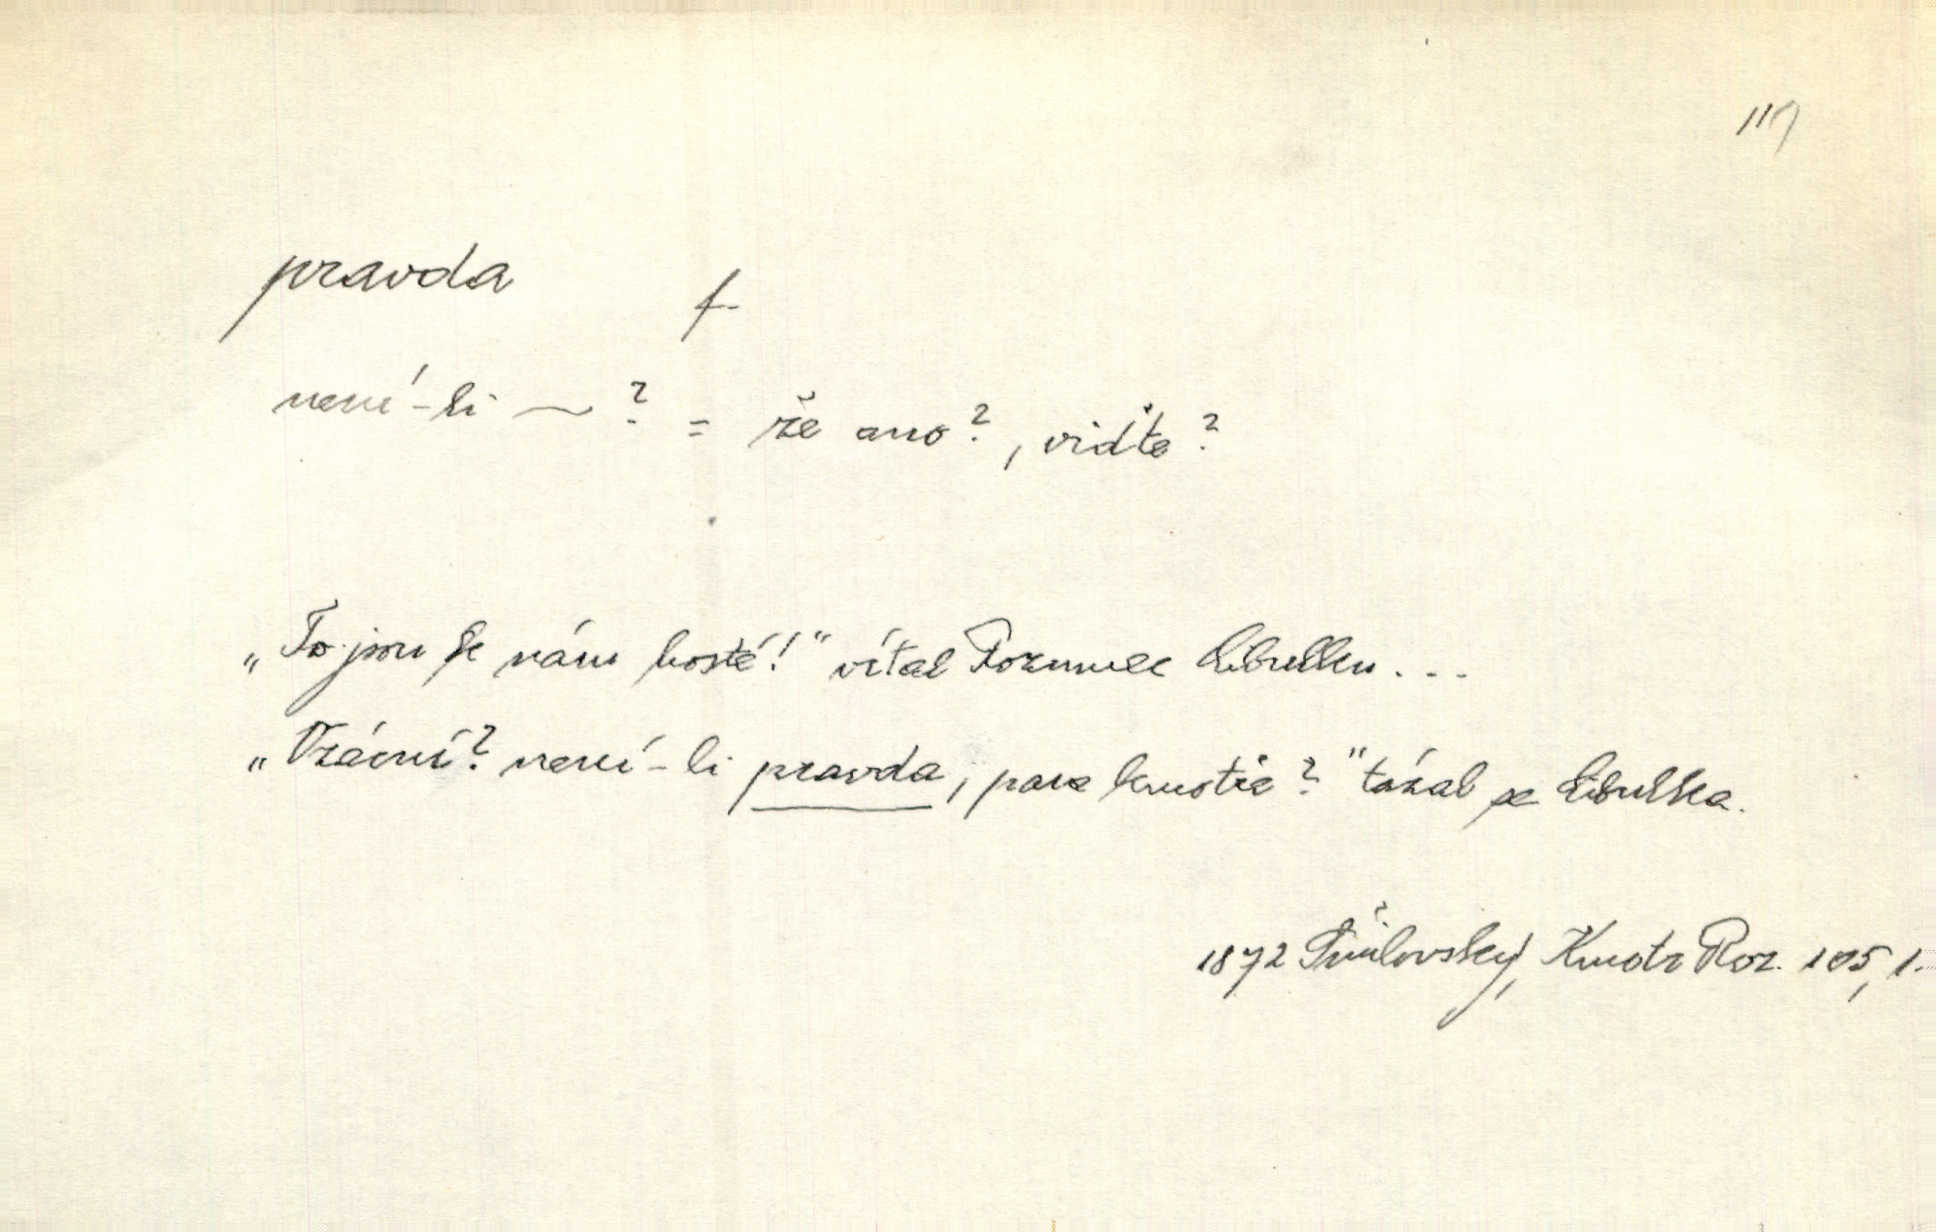 117
pravda f.
není-li ~? = že ano?, viďte?
„To jsou k nám hosté!“ vítal Rozumec Cibulku...
„Vzácní? není-li pravda, pane kmotře?“ tázal se Cibulka.
1872 Šmilovský, Kmotr Roz. 105, 1.